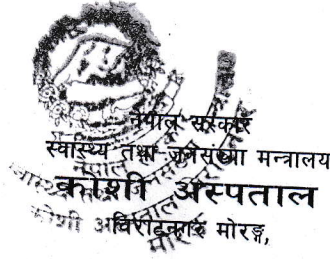 नेपाल सरकार
स्वास्थ्य तथा जनसंख्या मन्त्रालय
कोशी अस्पताल
विराटनगर मोरङ्ग,